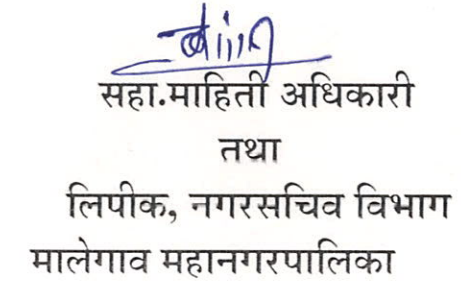 सहा.माहिती अधिकारी
तथा
लिपीक, नगरसचिव विभाग
मालेगाव महानगरपालिका